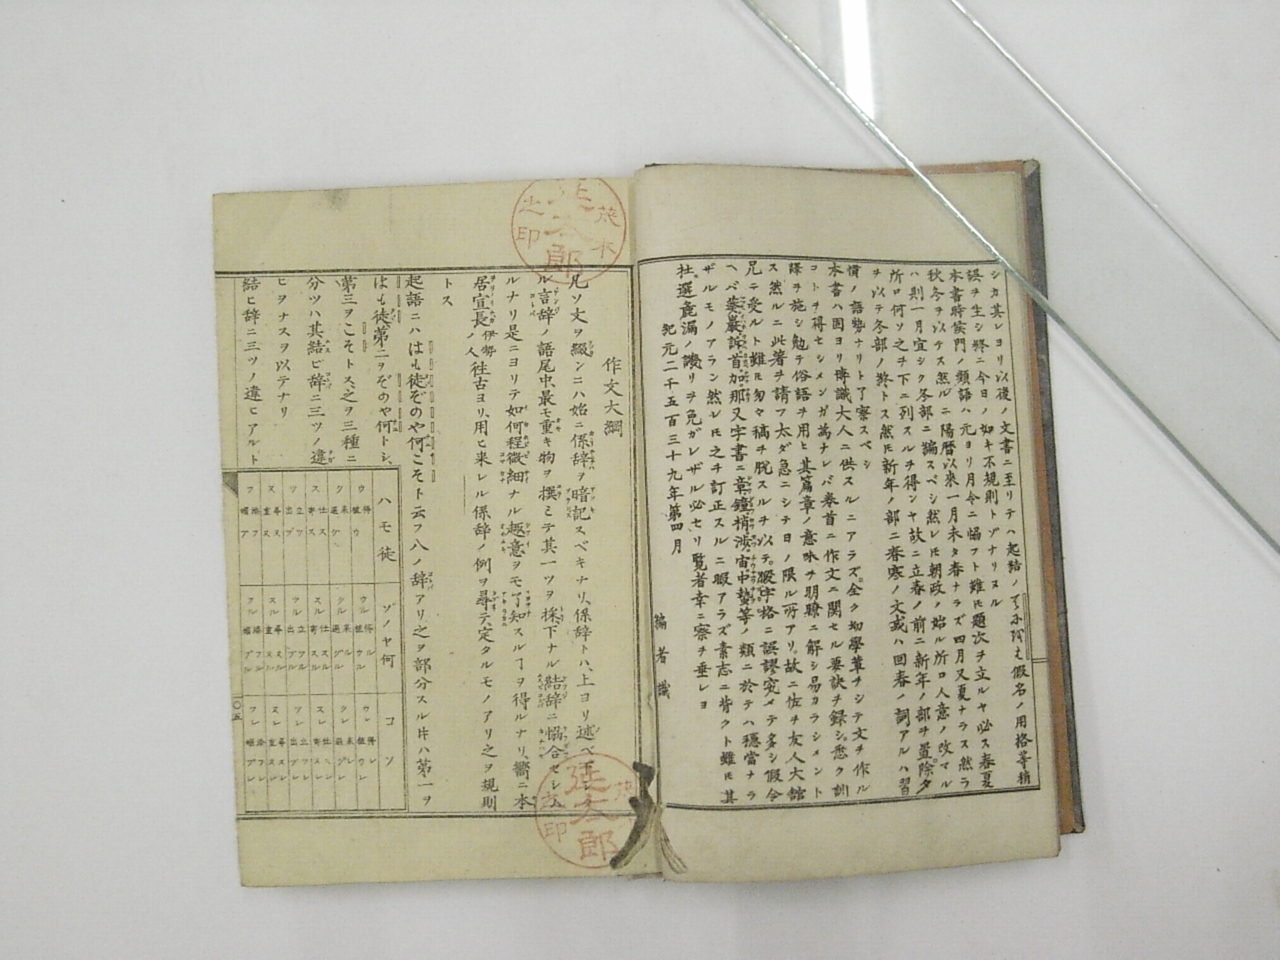 シカ其レヨリ以後ノ文書ニ至リテハ起結ノてにをは又假名ノ用格等稍
誤ヲ生シ終ニ今日ノ如キ不規則トゾナリヌル
本書時候門ノ類語ハ元ヨリ月令ニ協フト雖𪜈題次ヲ立ルヤ必ス春夏
秋冬ヲ以テス然ルニ陽暦以來一月未タ春ナラズ四月又夏ナラス然ラ
ハ則一月宜シク冬部ニ編スベシ然レ𪜈朝政ノ始ル所ロ人意ノ改マル
所ロ何ソ之ヲ下ニ列スルヲ得ンヤ故ニ立春ノ前ニ新年ノ部ヲ置除夕
ヲ以テ冬部ノ終トス然𪜈新年ノ部ニ春寒ノ文或ハ回春ノ詞アルハ習
慣ノ語勢ナリト了察スベシ
本書ハ固ヨリ博識大人ニ供スルニアラズ全ク幼學輩ヲシテ文ヲ作ル
コトヲ得セシメンガ為ナレバ巻首ニ作文ニ関セル要訣ヲ録シ悉ク訓
繹ヲ施シ勉テ俗語ヲ用ヒ其篇章ノ意味ヲ明瞭ニ解シ易カラシメント
ス然ルニ此著ヲ請フ太ダ急ニシテ日ノ限ル所アリ故ニ佐ヲ友人大館
兄ニ受ルト雖𪜈匆々稿ヲ脱スルヲ以テ假字格ニ誤謬究メテ多シ假令
ヘバ 訴首加那又字書ニ章鐘 宙中蟄等ノ類ニ於テハ穏當ナラ
ザルモノアラン然レ𪜈之ヲ訂正スルニ暇アラズ素志ニ背クト雖𪜈其
杜選麁漏ノ譏リヲ免ガレザル必セリ覧者幸ニ察ヲ垂レヨ
紀元二千五百三十九年第四月
編者識
作文大綱
凡ソ文ヲ綴ンニハ始ニ係辞ヲ暗記スベキナリ係辞トハ上ヨリ述ベ下シタ
ル言辞ノ語尾中最モ重キ物ヲ撰ミテ其一ツヲ採下ナル結辞ニ恊合セシム
ルナリ是ニヨリテ如何程微細ナル趣意ヲモ了知スルヿヲ得ルナリ嚮ニ本
居宣長伊勢ノ人往古ヨリ用ヒ来レル係辞ノ例ヲ尋テ定タルモノアリ之ヲ規則
トス
起語ニハはも徒ぞのや何こそト云フ八ノ辞アリ之ヲ部分スル𪜈ハ第一ヲ
はも徒第二ヲぞのや何トシ
第三ヲこそトス之ヲ三種ニ
分ツハ其結ビ辞ニ三ツノ違
ヒヲナスヲ以テナリ
結ヒ辞ニ三ツノ違ヒアルト
ハモ徒
ゾノヤ何
コソ
茂木
延太郎
之印
延太郎
之印